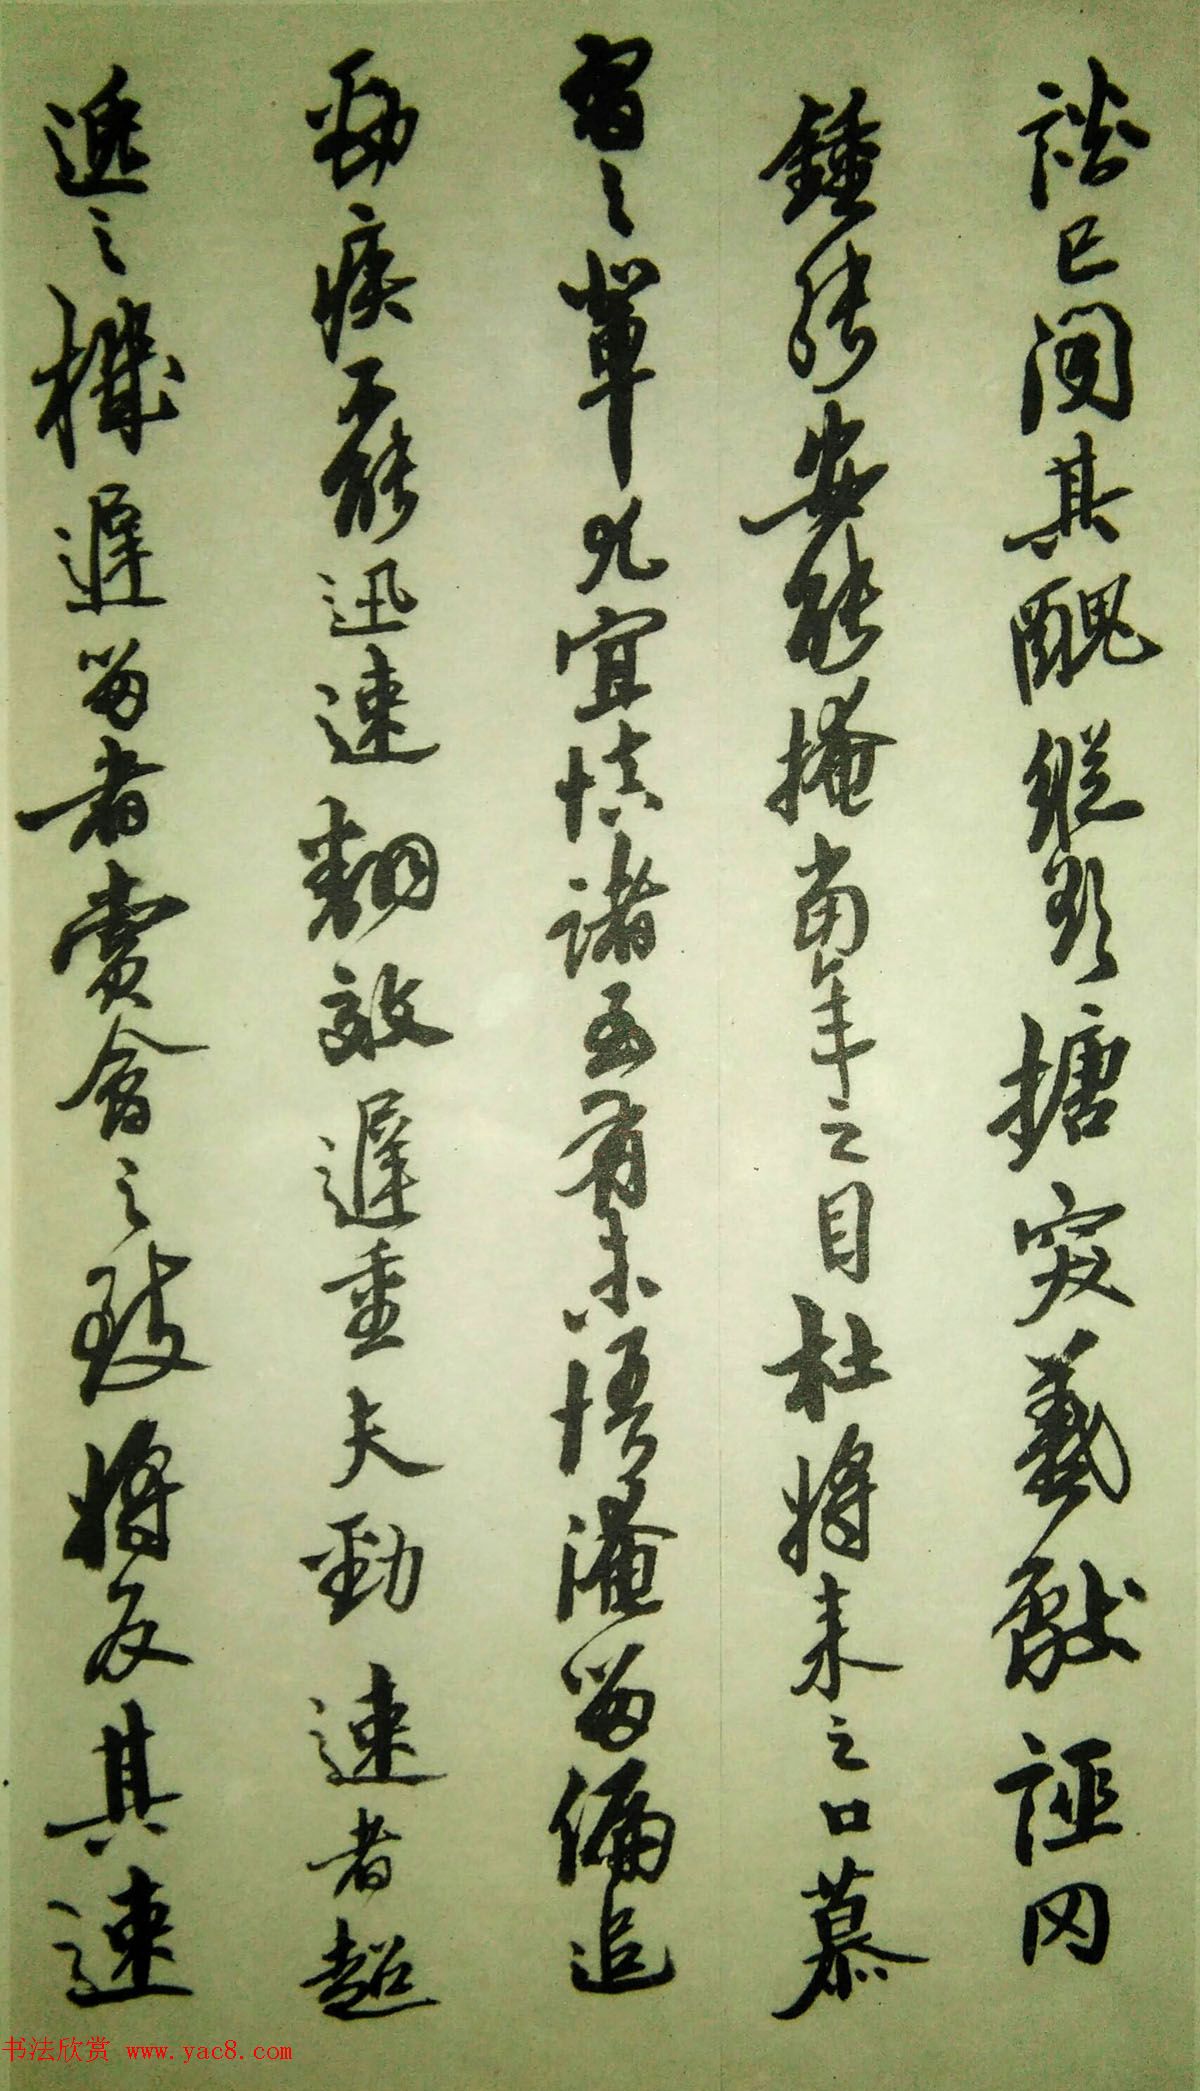 談已聞其醜縱欲搪突羲獻誣罔
鍾張安能掩當年之目杜將來之口慕
習之輩尤宜慎諸至有未悟淹留偏追
勁疾不能迅速翻效遲重夫勁速者超
逸之機遲留者賞會之致將反其速
书法欣赏 www.yac8.com